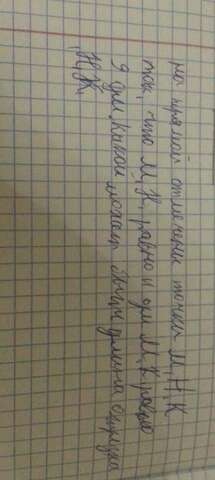 на прямой отмечены точки М, Н, К
так, что М, Н, равно 11 дм М, К равно
9 дм Какой может быть длина отрезка
Н, К,